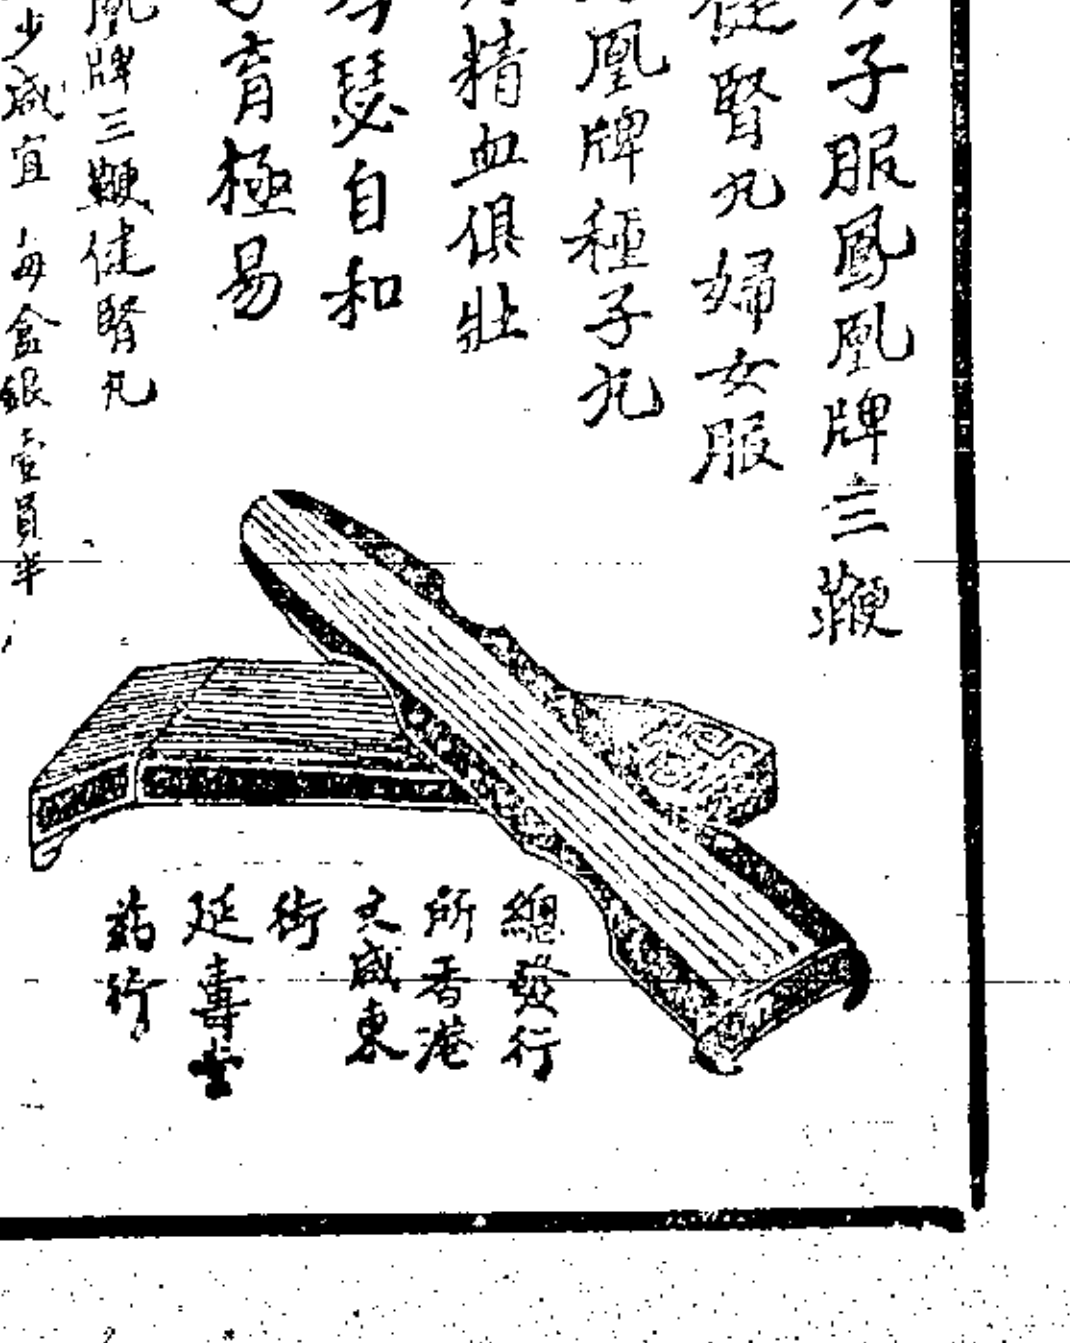 子服鳳凰牌三鞭
健腎丸婦女服
凰牌種子丸
精血俱壯
瑟自和
育極易
凰牌三鞭健腎丸
少咸宜每盒銀壹員半
總發行
所香港
文咸東
街
延壽堂
葯行